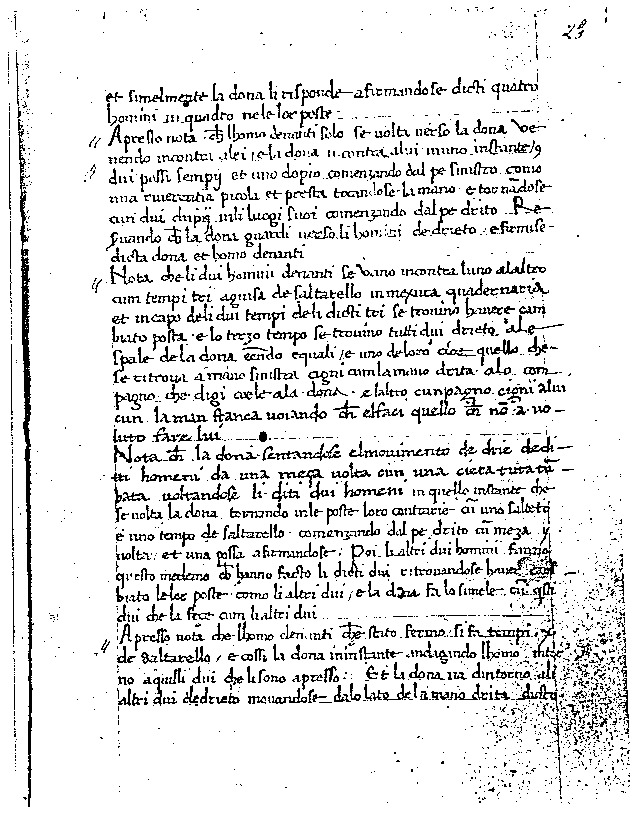 28
et simelmente la dona li risponde afirmandose dicti quatro
homini in quadro nele lor poste
Apresso nota ch lhomo denanti solo se volta verso la dona Ve-
nendo incontra alei e la dona incontra alui inuno instante
dui possi sempij et uno dopio comenzando dal pe sinistro como
una riverentia picola et presta tocandose la mano e tornadose
cun dui dupij inli luogi suoi comenzando dal pe drito Re-
guando la dona guardi verso li homini de drieto e firmise
dicta dona et homo denanti
Nota che li dui homini denanti se vano incontra luno alaltro
cum tempi tri aguisa de saltarello in mexura quadernaria
et incapo deli dui tempi deli dicti tri se trovino havere cam
biato posta e lo terzo tempo se trovino tutti dui drieto ale
spale de la dona equali e uno de loro cioe quello che
se ritrova a mano sinistra cigni cum la mano drita alo com
pagno che digi ala dona e laltro cunpagno cigni alui
cun la man stanca voiando ch elfaci quello ch no a vo-
luto fare lui
Nota ch la dona sentandose el movimento de drie de di-
ti homeni da una meza volta cun una
pata voltandose li diti dui homeni in quello instante che
se volta la dona tornando inle poste loro contrarie cu uno salteto
e uno tempo de saltarello comenzando dal pe drito cu meza
volta et una possa afirmandose Poi li altri dui homini fanzo
questo medemo ch hanno facto li dicti dui ritrovandose haver cam
biato le lor poste como li altri dui e la dona fa lo simele cu
dui che la fece cum li altri dui
Apresso nota che lhomo denanti che stato fermo si fa tempi
de Saltarello e cossi la dona in instante andagando lhomo
no aquilli dui che li sono apresso Et la dona va dintorno ali
altri dui de drieto movandose dalo lato de la mano drita